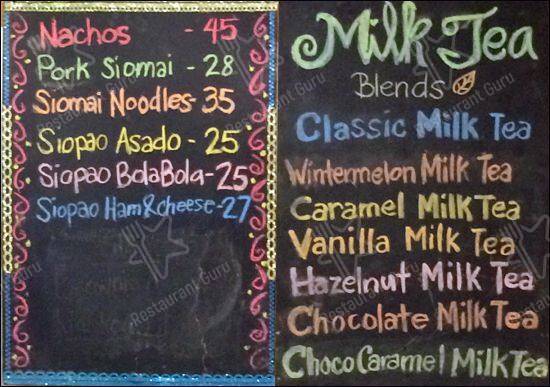 Nachos - 45
Pork Siomai - 28
Siomai Noodles - 35
Siopao Asado - 25
Siopao BolaBola - 25
Siopao Ham & cheese - 27
Milk Tea
Blends
Classic Milk Tea
Wintermelon Milk Tea
Caramel Milk Tea
Vanilla Milk Tea
Hazelnut Milk Tea
Chocolate Milk Tea
Choco Caramel Milk Tea
Restaurant Guru